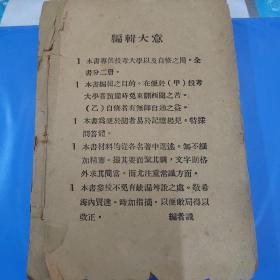 編輯大意
1 本書專供投考大學以及自修之用,全
書分二冊。
1 本書編輯之目的,在便於(甲)投考
大學者預備時免東翻西閱之苦。
(乙)自修者有無師自通之益。
1 本書為便於閱者易於記憶起見,特採
問答體。
1 本書材料均從各名著中選述,無不細
加精審。撮其要而絜其綱,文字則格
外求其簡當。而尤注重常識方面。
1 本書參校不免有缺漏舛訛之處。敬希
海內賢達,時加指摘,以便敝局得以
改正。 編者識